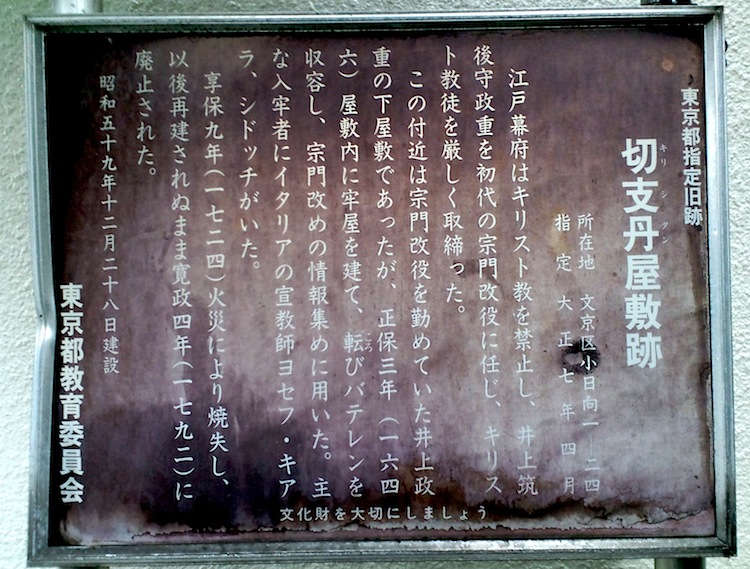 東京都指定旧跡
切支丹屋敷跡
キリシタン
所在地 文京区小日向一―二四
指定 大正七年四月
江戸幕府はキリスト教を禁止し、井上筑
後守政重を初代の宗門改役に任じ、キリス
ト教徒を厳しく取締った。
この付近は宗門改役を勤めていた井上政
重の下屋敷であったが、正保三年(一六四
六)屋敷内に牢屋を建て、転びバテレンを
ころ
収容し、宗門改めの情報集めに用いた。主
な入牢者にイタリアの宣教師ヨセフ・キア
ラ、シドッチがいた。
享保九年(一七二四)火災により焼失し、
以後再建されぬまま寛政四年(一七九二)に
廃止された。
昭和五十九年十二月二十八日建設
東京都教育委員会
文化財を大切にしましょう